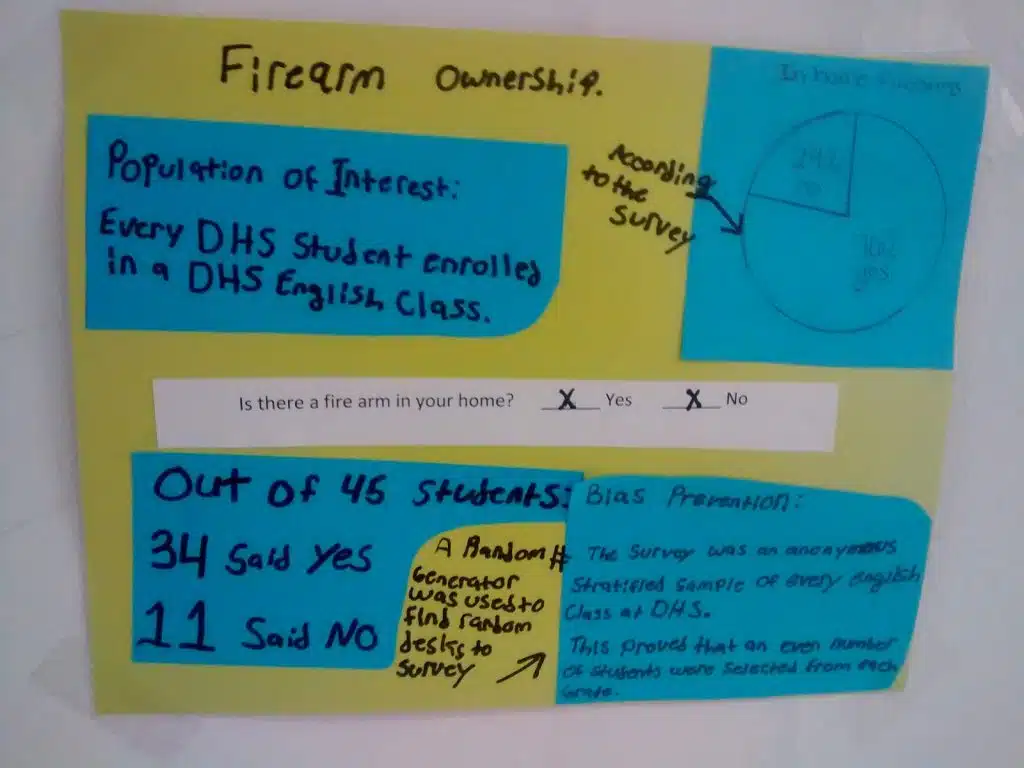 Firearm Ownership.
Population of Interest:
Every DHS Student enrolled
in a DHS English Class.
According
to the
Survey
In home
no
yes
Is there a fire arm in your home? X Yes X No
Out of 45 students:
34 Said Yes
11 Said No
A Random #
Generator
was used to
find random
desks to
survey
Bias Prevention:
The Survey was an anonymous
Stratified Sample of every english
Class at DHS.
This proved that an even number
of students were selected from each
Grade.